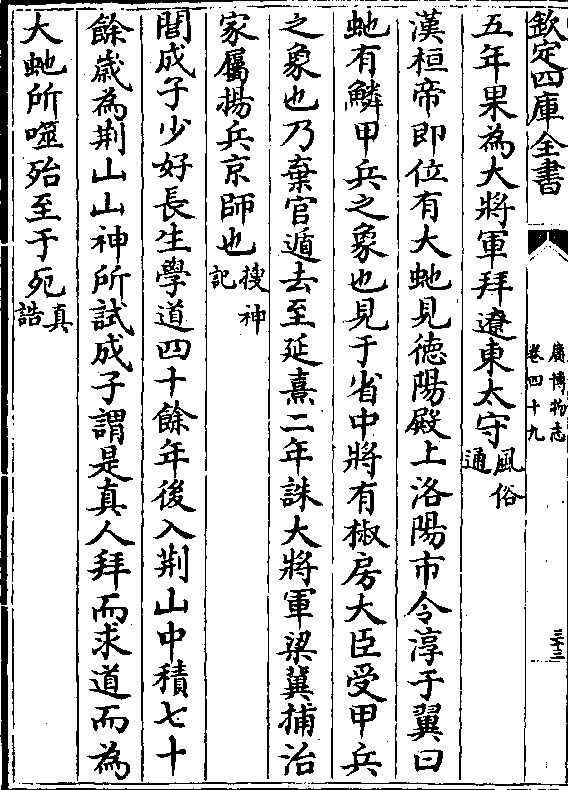 欽定四庫全書
廣博物志
卷四十九
三十三
五年果為大將軍拜遼東太守風俗
通
漢桓帝即位有大虵見德陽殿上洛陽市令淳于翼曰
虵有鱗甲兵之象也見于省中將有椒房大臣受甲兵
之象也乃棄官遁去至延熹二年誅大將軍梁冀捕治
家屬揚兵京師也搜神
記
閭成子少好長生學道四十餘年後入荆山中積七十
餘歲為荆山山神所試成子謂是真人拜而求道而為
大虵所噬殆至于死真
誥